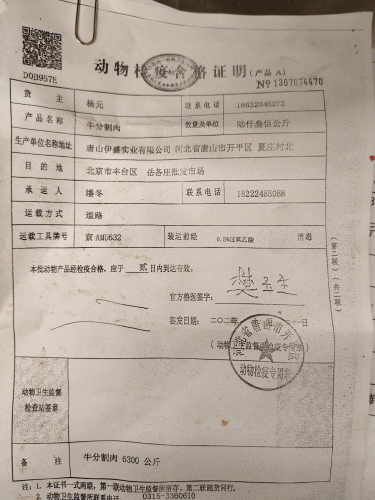 DOB957E
动物检疫合格证明（产品 A）
№ 1307074470
货 主 杨元 联系电话 18622546272
产品名称 牛分割肉 数量及单位 陆仟叁佰公斤
生产单位名称地址 唐山伊盛实业有限公司 河北省唐山市开平区 夏庄村北
目 的 地 北京市丰台区 岳各庄批发市场
承 运 人 潘冬 联系电话 18222465068
运载方式 道路
运载工具牌号 京 AMQ632 装运前经 0.5%过氧乙酸 消毒
本批动物产品经检疫合格，应于 贰 日内到达有效。
官方兽医签字：
签发日期：二〇二
（动物卫生监督所检疫专用章）
河北省唐山市开平区
动物检疫专用章
动物卫生监督
检查站签章
备 注 牛分割肉 6300 公斤
（第二联）（共二联）
注：1. 本证书一式两联，第一联动物卫生监督所留存，第二联随货同行。
2. 动物卫生监督所联系电话 0315-3360610